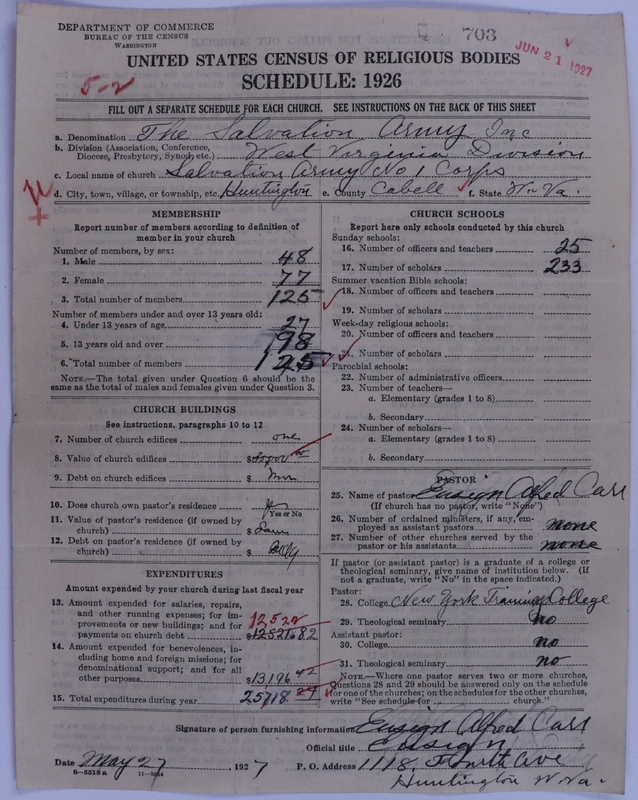 DEPARTMENT OF COMMERCE
BUREAU OF THE CENSUS
WASHINGTON
703
JUN 21 1927
UNITED STATES CENSUS OF RELIGIOUS BODIES
SCHEDULE: 1926
5-2
FILL OUT A SEPARATE SCHEDULE FOR EACH CHURCH. SEE INSTRUCTIONS ON THE BACK OF THIS SHEET
a. Denomination The Salvation Army Inc
b. Division (Association, Conference, Diocese, Presbytery, Synod, etc.) West Virginia Division
c. Local name of church Salvation Army No 1 Corps
d. City, town, village, or township, etc. Huntington e. County Cabell f. State W. Va.
MEMBERSHIP
Report number of members according to definition of
member in your church
Number of members, by sex:
1. Male 48
2. Female 77
3. Total number of members 125
Number of members under and over 13 years old:
4. Under 13 years of age 27
5. 13 years old and over 98
6. Total number of members 125
NOTE.—The total given under Question 6 should be
same as the total of males and females given under Question 3.
CHURCH BUILDINGS
See instructions, paragraphs 10 to 12
7. Number of church edifices one
8. Value of church edifices $
9. Debt on church edifices $
10. Does church own pastor's residence
Yes or No
11. Value of pastor's residence (if owned by
church) $
12. Debt on pastor's residence (if owned by
church) $
EXPENDITURES
Amount expended by your church during last fiscal year
13. Amount expended for salaries, repairs,
and other running expenses; for im-
provements or new buildings; and for 12522
payments on church debt $12521.82
14. Amount expended for benevolences, in-
cluding home and foreign missions; for
denominational support; and for all
other purposes $13196.42
15. Total expenditures during year 25718.24
CHURCH SCHOOLS
Report here only schools conducted by this church
Sunday schools:
16. Number of officers and teachers 25
17. Number of scholars 233
Summer vacation Bible schools:
18. Number of officers and teachers
19. Number of scholars
Week-day religious schools:
20. Number of officers and teachers
21. Number of scholars
Parochial schools:
22. Number of administrative officers
23. Number of teachers—
a. Elementary (grades 1 to 8)
b. Secondary
24. Number of scholars—
a. Elementary (grades 1 to 8)
b. Secondary
PASTOR
25. Name of pastor Ensign Alfred Carr
(If church has no pastor, write "None")
26. Number of ordained ministers, if any, em-
ployed as assistant pastors none
27. Number of other churches served by the
pastor or his assistants none
If pastor (or assistant pastor) is a graduate of a college or
theological seminary, give name of institution below. (If
not a graduate, write "No" in the space indicated.)
Pastor:
28. College New York Training College
29. Theological seminary no
Assistant pastor:
30. College no
31. Theological seminary no
NOTE.—Where one pastor serves two or more churches,
Questions 28 and 29 should be answered only on the schedule
for one of the churches; on the schedules for the other churches,
write "See schedule for church."
Signature of person furnishing information Ensign Alfred Carr
Official title Ensign
Date May 27, 1927 P. O. Address 1118 Fourth Ave
8—5518a 11—9054 Huntington W. Va.